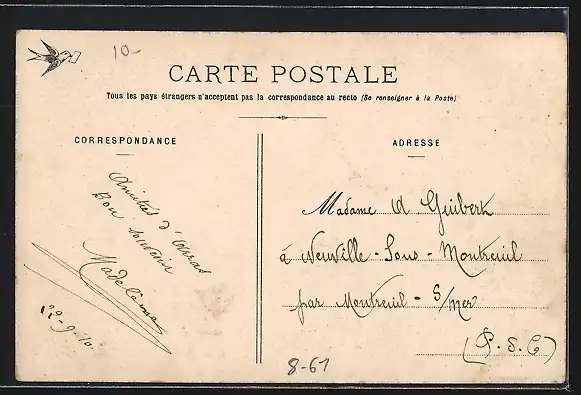 10-
CARTE POSTALE
Tous les pays étrangers n'acceptent pas la correspondance au recto (Se renseigner à la Poste)
CORRESPONDANCE
Amitiés d'Arras
Bon souvenir
Madeleine
22-9-10.
ADRESSE
Madame A Guibert
à Neuville-Sous-Montreuil
par Montreuil-S/Mer
(P.d.C)
8-61